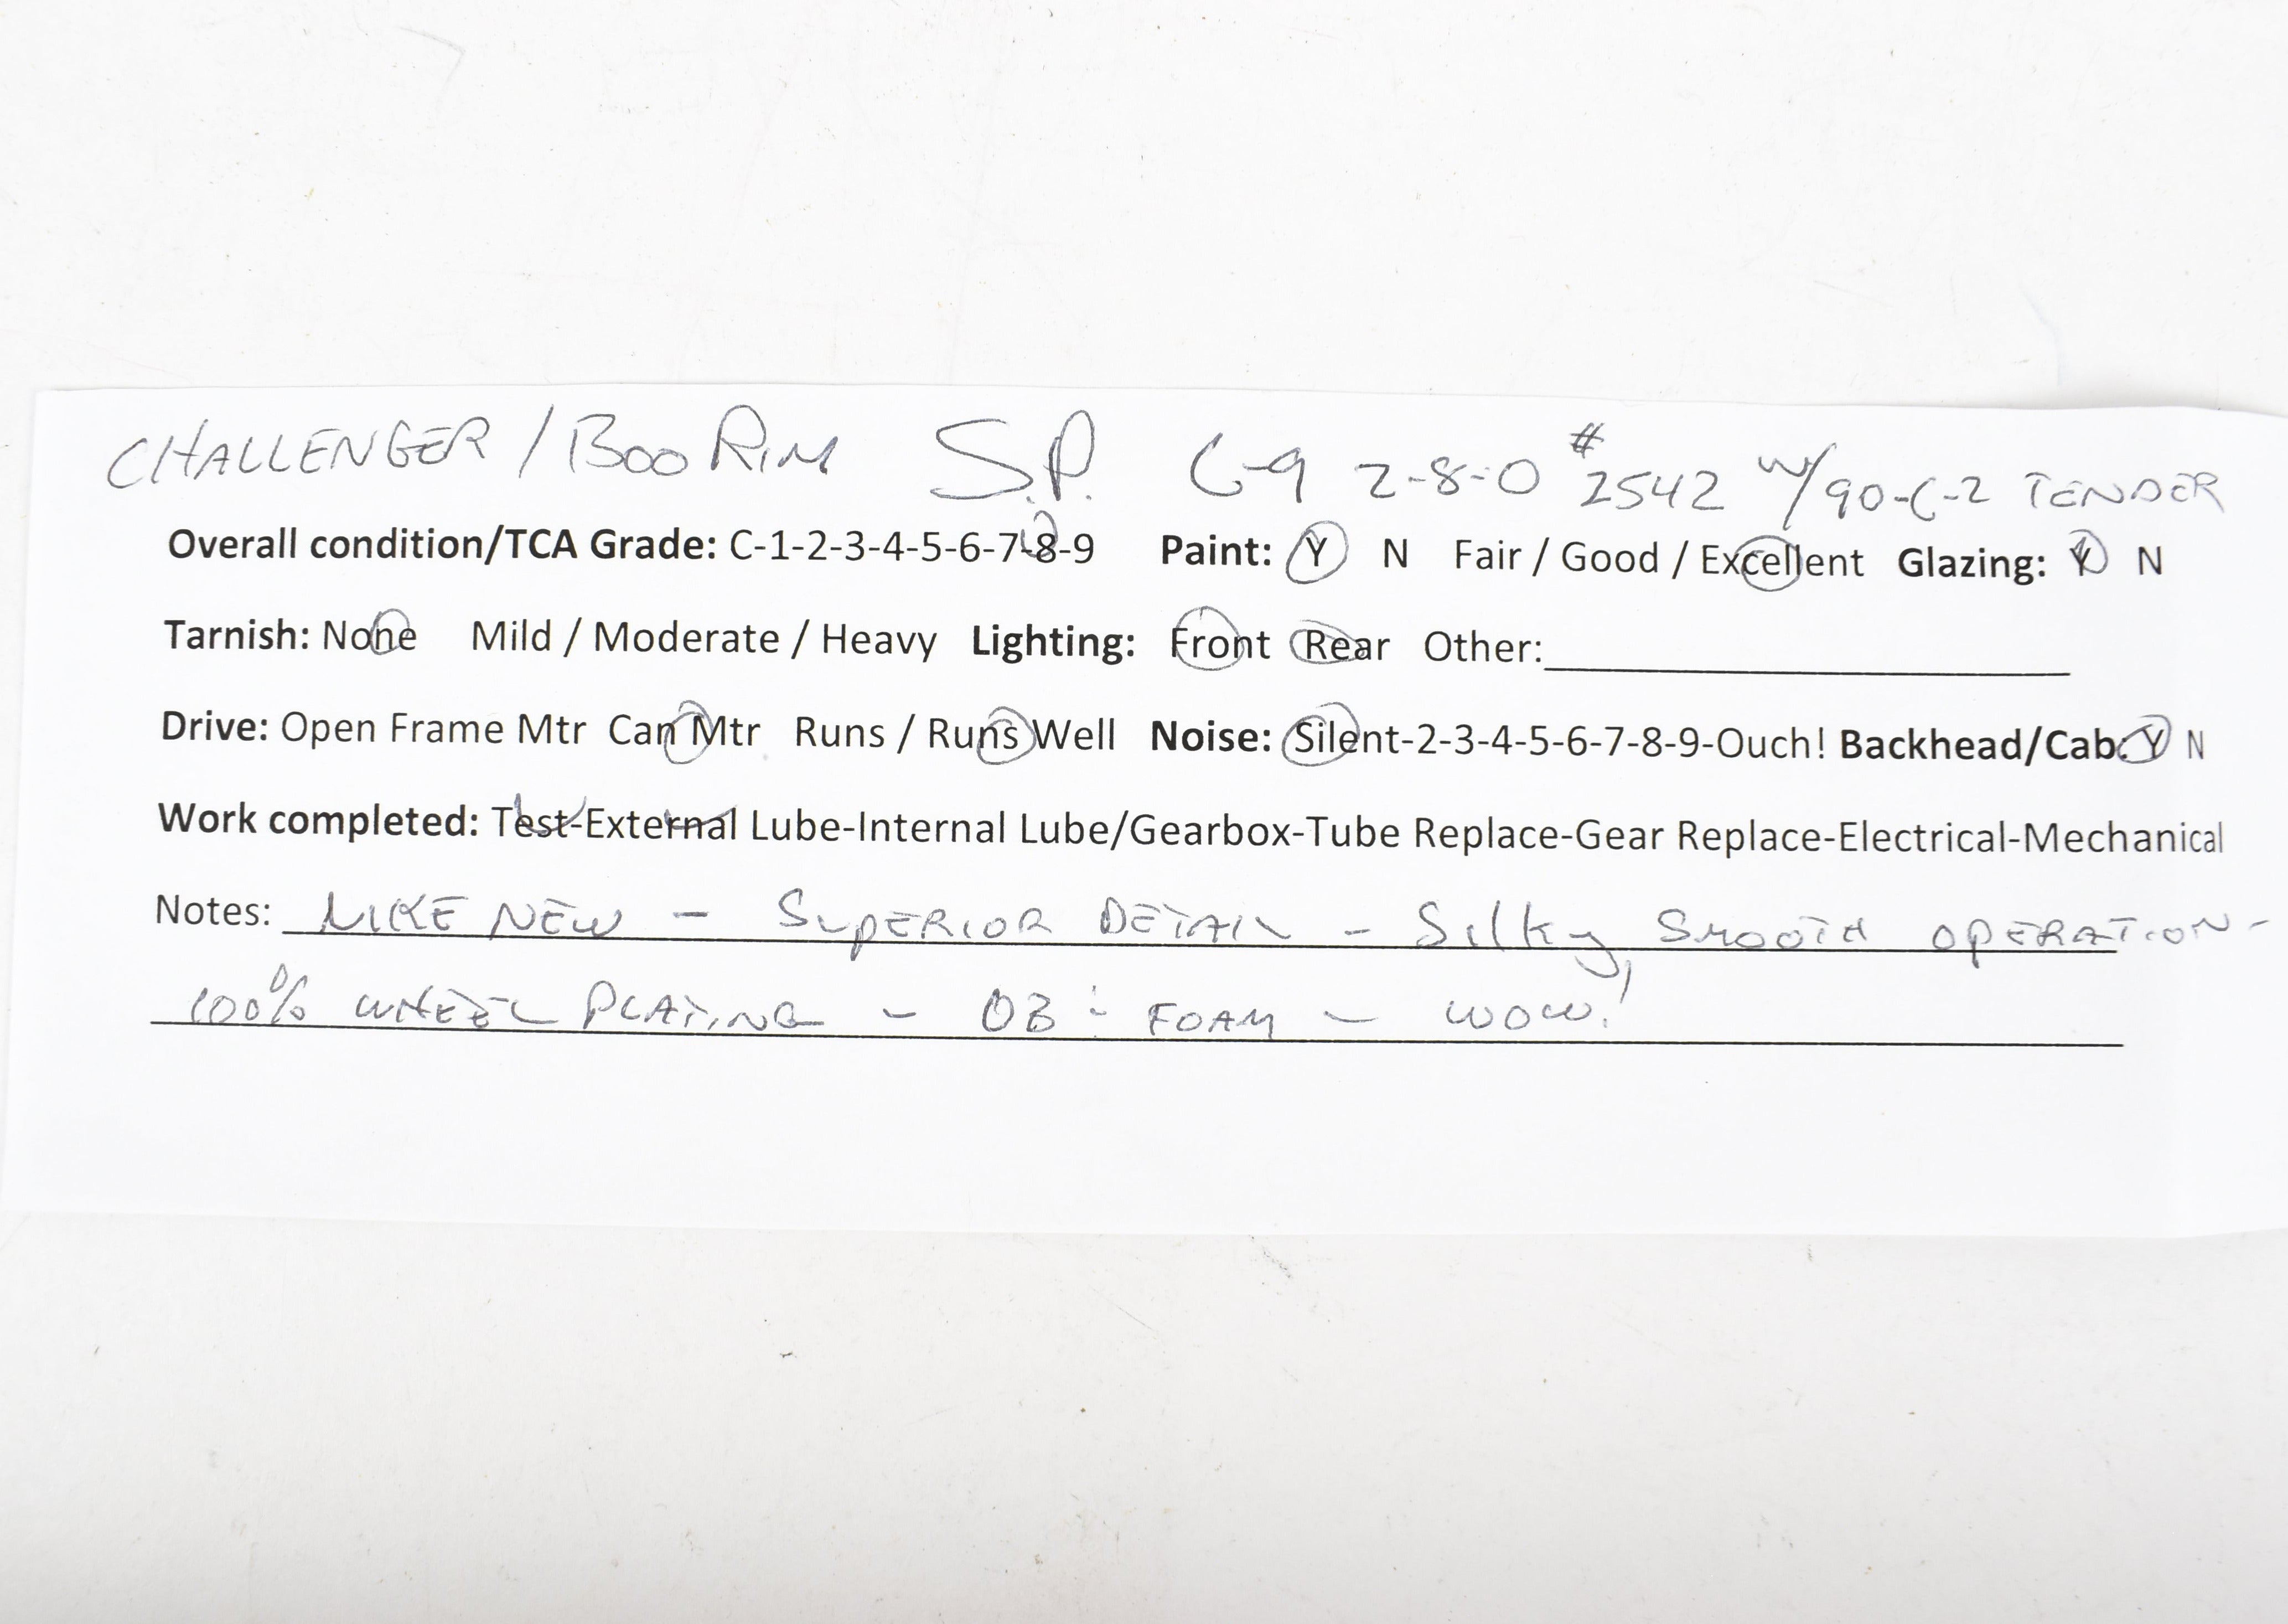 CHALLENGER / BOO RIM S.P. C-9 2-8-0 #2542 W/90-C-2 TENDER
Overall condition/TCA Grade: C-1-2-3-4-5-6-7-8-9 Paint: Y N Fair / Good / Excellent Glazing: Y N
Tarnish: None Mild / Moderate / Heavy Lighting: Front Rear Other:
Drive: Open Frame Mtr Can Mtr Runs / Runs Well Noise: Silent-2-3-4-5-6-7-8-9-Ouch! Backhead/Cab: Y N
Work completed: Test-External Lube-Internal Lube/Gearbox-Tube Replace-Gear Replace-Electrical-Mechanical
Notes: LIKE NEW - SUPERIOR DETAIL - Silky SMOOTH OPERATION -
100% WHEEL PLATING - OB : FOAM - WOW!